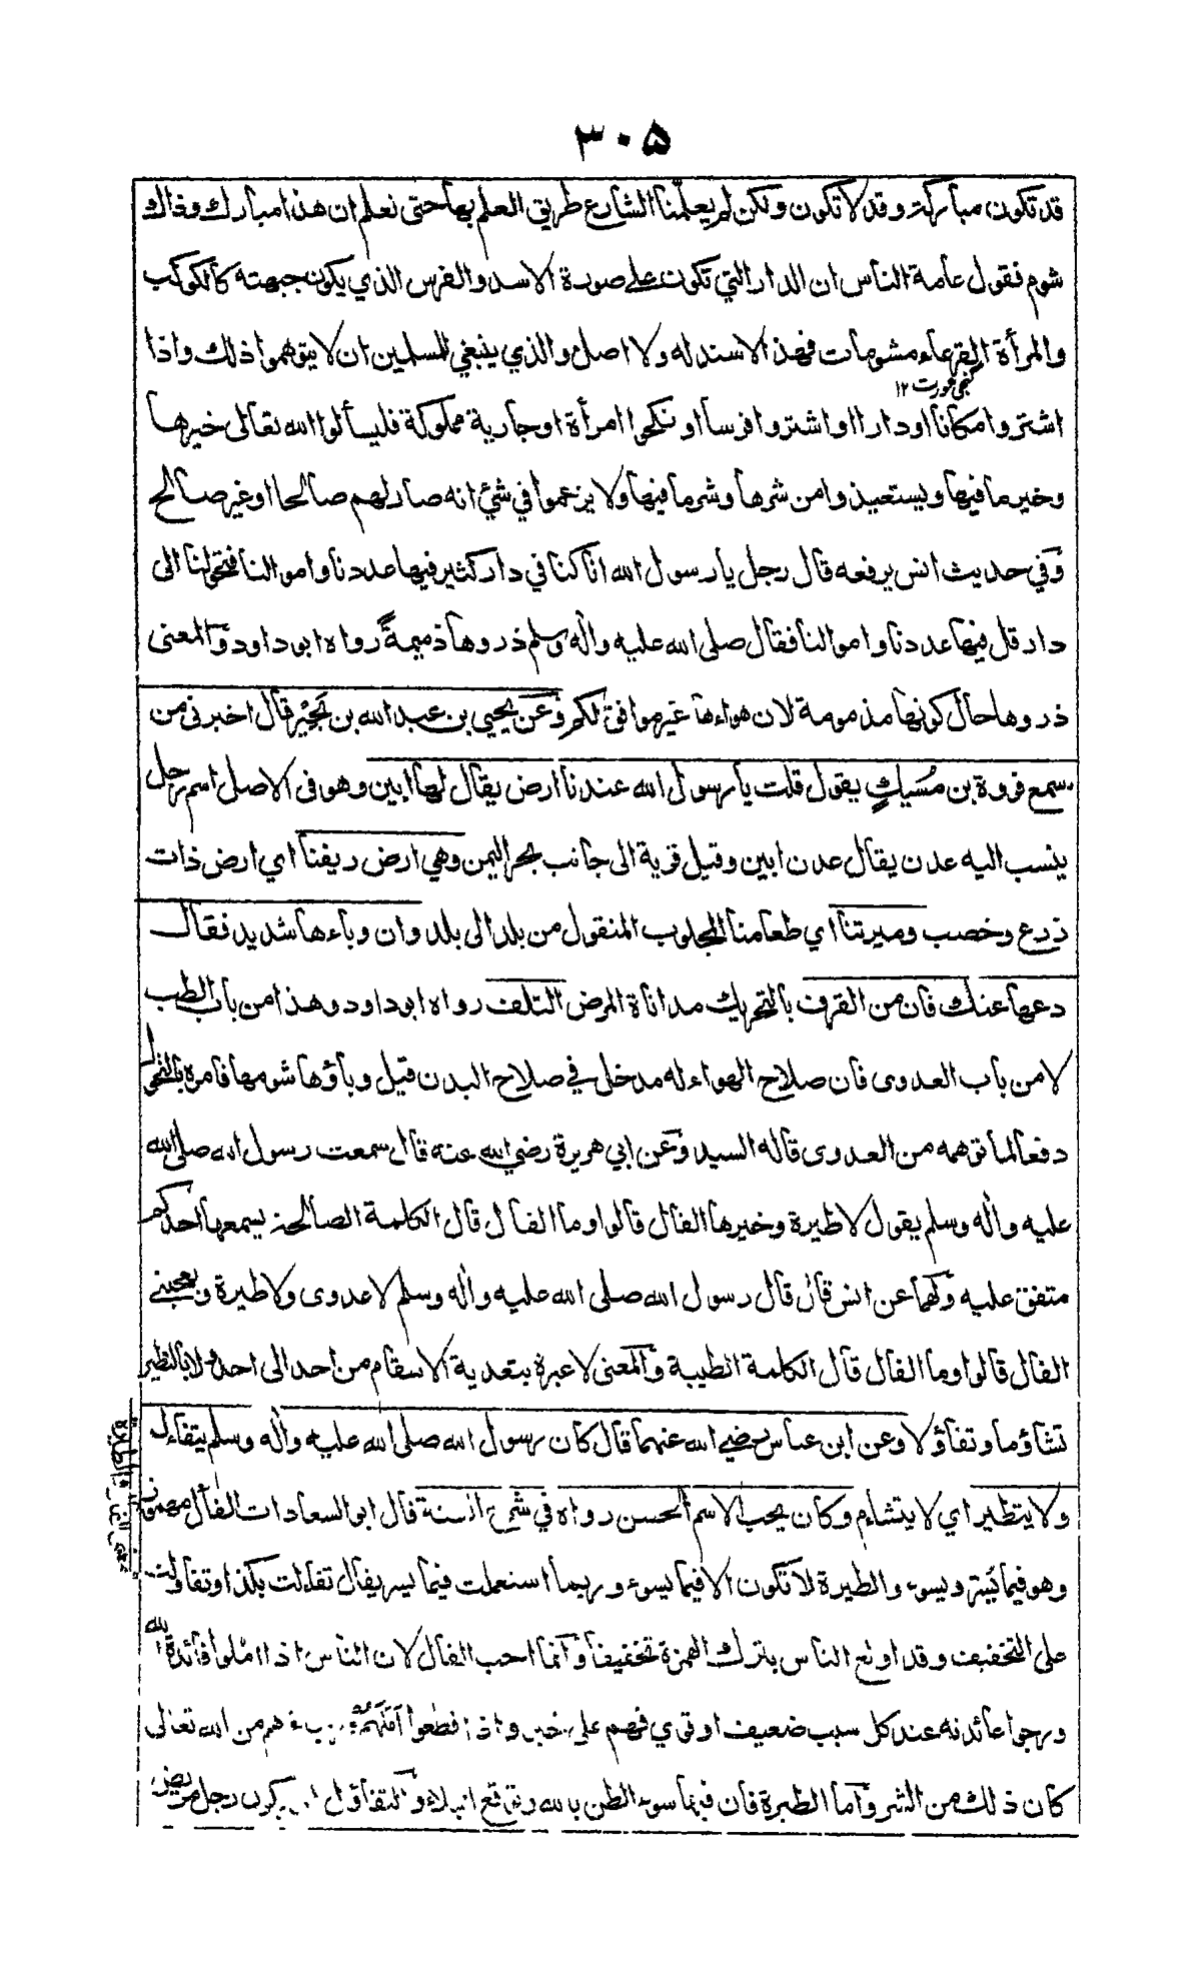 ۳۰۵
قد تكون مباركة وقد لا تكون ولكن لم يعلّمنا الشارع طريق العلم بها حتى نعلم ان هذا مبارك وذاك
شوم فقول عامة الناس ان الدار التي تكون على صورة الاسد والفرس الذي يكون جبهته كالكوكب
والمرأة القرعاء مشومات فهذا لا سند له ولا اصل والذي ينبغي للمسلمين ان لا يتوهموا ذلك واذا
گنجی عورت ۱۲
اشتروا مكانا او دارا او اشتروا فرسا او نكحوا امرأة او جارية مملوكة فليسألوا الله تعالى خيرها
وخير ما فيها ويستعيذوا من شرها وشر ما فيها ولا يزعموا في شيء انه صار لهم صالحا او غير صالح
وفي حديث انس يرفعه قال رجل يا رسول الله انا كنا في دار كثير فيها عددنا واموالنا فتحولنا الى
دار قل فيها عددنا واموالنا فقال صلى الله عليه واله وسلم ذروها ذميمةً رواه ابو داود والمعنى
ذروها حال كونها مذمومة لان هواءها غير موافق لكم وعن يحيى بن عبد الله بن بَحِيْر قال اخبرني من
سمع فروة بن مُسَيكٍ يقول قلت يا رسول الله عندنا ارض يقال لها ابين وهو في الاصل اسم رجل
ينسب اليه عدن يقال عدن ابين وقيل قرية الى جانب بحر اليمن وهي ارض ريفنا اي ارض ذات
زرع وخصب وميرتنا اي طعامنا المجلوب المنقول من بلد الى بلد وان وباءها شديد فقال
دعها عنك فان من القرف بالتحريك مداناة المرض التلف رواه ابو داود وهذا من باب الطب
لا من باب العدوى فان صلاح الهواء له مدخل في صلاح البدن قيل وباؤها شومها فامره بالتحول
دفعا لما توهمه من العدوى قاله السيد وعن ابي هريرة رضي الله عنه قال سمعت رسول الله صلى الله
عليه واله وسلم يقول لا طيرة وخيرها الفال قالوا وما الفال قال الكلمة الصالحة يسمعها احدكم
متفق عليه ولهما عن انس قال قال رسول الله صلى الله عليه واله وسلم لا عدوى ولا طيرة ويعجبني
الفال قالوا وما الفال قال الكلمة الطيبة والمعنى لا عبرة بتعدية الاسقام من احد الى احد ولا بالتطير
تشاؤما وتفاؤلا وعن ابن عباس رضي الله عنهما قال كان رسول الله صلى الله عليه واله وسلم يتفاءل
ولا يتطير اي لا يتشاءم وكان يحب الاسم الحسن رواه في شرح السنة قال ابو السعادات الفأل مهموز
وهو فيما يسر ويسوء والطيرة لا تكون الا فيما يسوء وربما استعملت فيما يسر يقال تفاءلت بكذا وتفاولت
على التخفيف وقد اولع الناس بترك الهمزة تخفيفا وانما احب الفال لان الناس اذا املوا فائدة الله
ورجوا عائدته عند كل سبب ضعيف او قوي فهم على خير واذا قطعوا املهم من الله تعالى
كان ذلك من الشر واما الطيرة فان فيها سوء الظن بالله وتوقع البلاء والتفاؤل رجل مريض